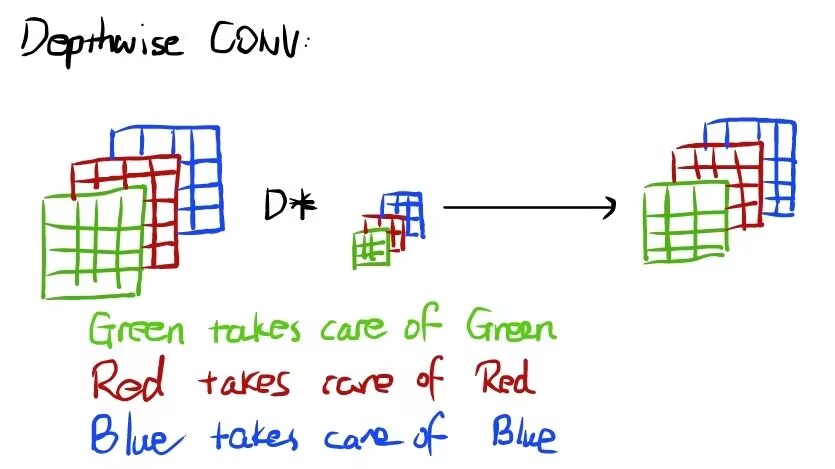 Depthwise CONV:
D*
Green takes care of Green
Red takes care of Red
Blue takes care of Blue